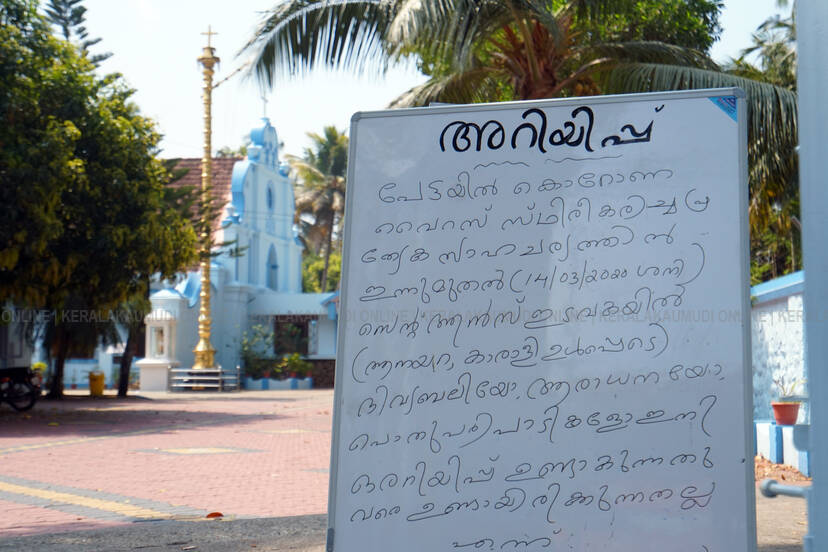 അറിയിപ്പ്
പേട്ടയിൽ കൊറോണ
വൈറസ് സ്ഥിരീകരിച്ച പ്ര
ത്യേക സാഹചര്യത്താൽ
ഇന്നുമുതൽ (14/03/2020 ശനി)
സെന്റ് ആൻസ് ഇടവകയിൽ
(ആനയറ, കാരാളി ഉൾപ്പെടെ)
ദിവ്യബലിയോ, ആരാധനയോ,
പൊതുപരിപാടികളോ ഇനി
ഒരറിയിപ്പ് ഉണ്ടാകുന്നതു
വരെ ഉണ്ടായിരിക്കുന്നതല്ല
എന്ന്
ONLINE | KERALAKAUMUDI ONLINE | KERALAKAUMUDI ONLINE